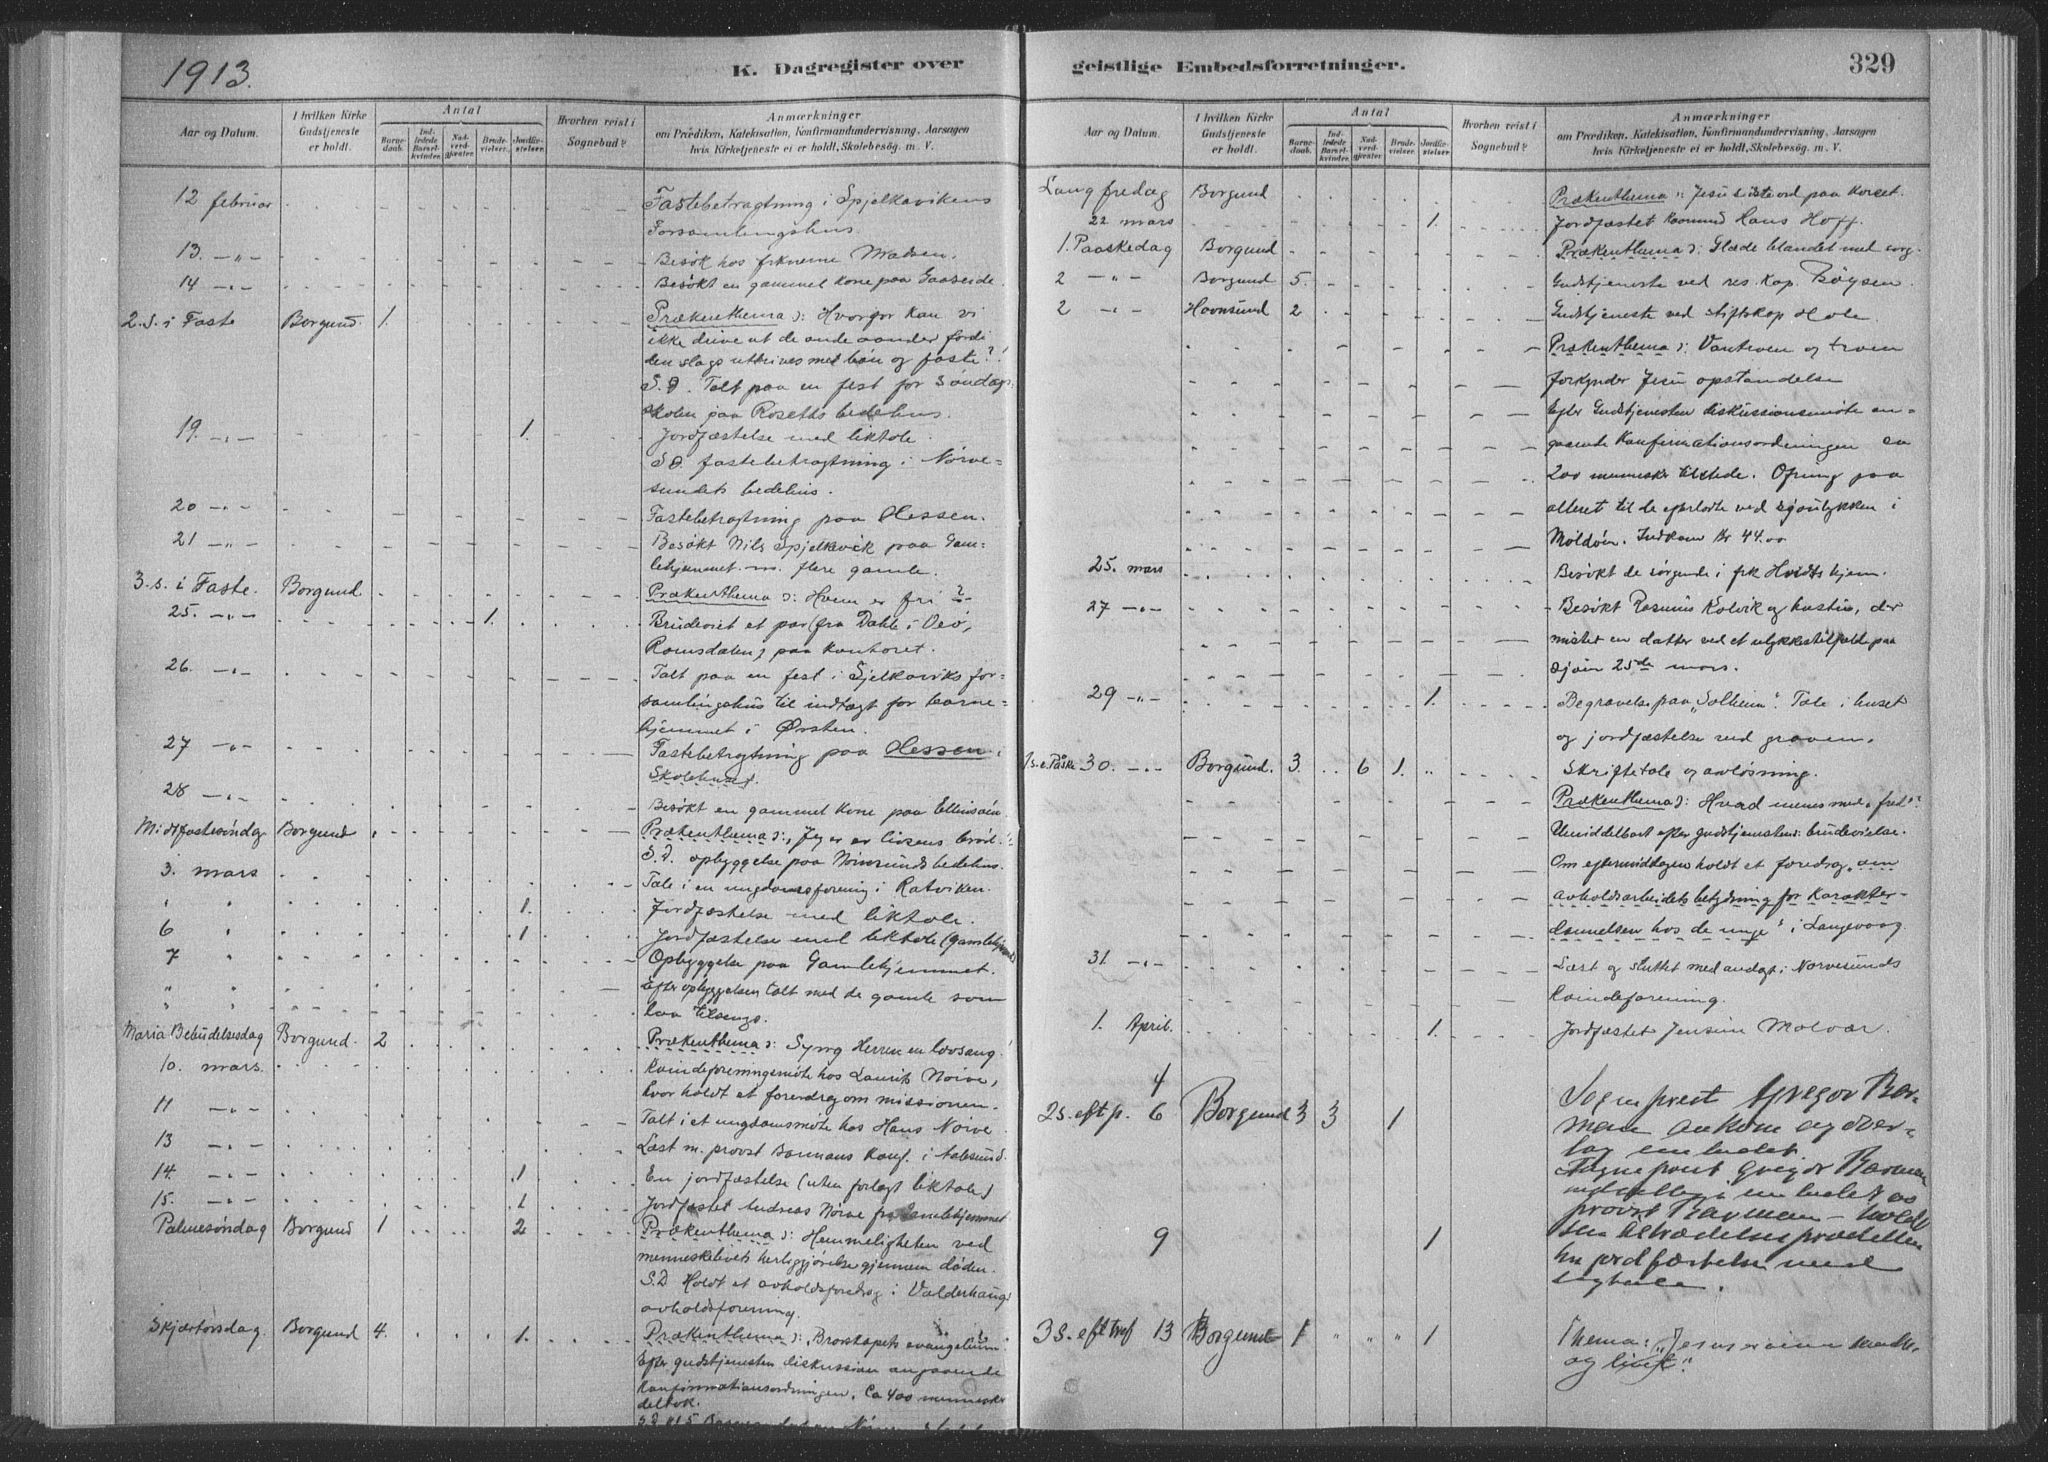 1913.
K. Dagregister over
Aar og Datum.
I hvilken Kirke Gudstjeneste er holdt.
Antal
Barnedaab.
Indledede Barselkvinder.
Nadverdgjæster
Brudevielser.
Jordfæstelser.
Hvorhen reist i Sognebud?
Anmærkninger
om Prædiken, Katekisation, Konfirmandundervisning, Aarsagen
hvis Kirketjeneste ei er holdt, Skolebesøg. m. V.
12 februar Fastebetragtning i Spjelkavikens
Forsamlingshus.
13. -„- Besøk hos frknerne Madsen.
14 -„- Besøkt en gammel kone paa Gaaseide.
2. S. i Faste Borgund. 1. Prækenthema: Hvorfor kan vi
ikke drive ut de onde aander fordi
den slags utdrives med bøn og faste?
S. D. Talt paa en fest for Søndags
skolen paa Rosetts bedehus.
19. -„- 1. Jordfæstelse med liktale.
S. D. fastebetragtning i Nørve-
sundets bedehus.
20 -„- Fastebetragtning paa Hessen.
21 -„- Besøkt Nils Spjelkavik paa Gam-
lehjemmet m. flere gamle.
3. s. i Faste. Borgund Prækenthema: Hvem er fri?
25. -„- 1. Brudeviet et par (fra Dahle i Veø,
Romsdalen) paa kontoret.
26. -„- Talt paa en fest i Spjelkaviks for-
samlingshus til indtægt for barne-
hjemmet i Ørsten.
27 -„- Fastebetragtning paa Hessen
Skolehuset.
28 -„- Besøkt en gammel kone paa Ellinsøen
Midtfastesøndag Borgund Prækenthema: Jeg er livsens brød.
S. D. opbyggelse paa Nørvesunds bedehus.
3. mars Tale i en ungdomsforening i Ratviken.
„ „ 1. Jordfæstelse med liktale.
6 „ 1 Jordfæstelse med liktale (gamlehjemmet)
7 „ Opbyggelse paa Gamlehjemmet.
„ „ Efter opbyggelsen talt med de gamle som
laa tilsengs.
Maria Bebudelsesdag Borgund. 2 Prækenthema: Syng Herren en lovsang.
10. mars. Kvindeforeningsmøte hos Laurits Nørve,
hvor holdt et foredrag om missionen.
11 -„- Talt i et ungdomsmøte hos Hans Nørve
13 -„- Læst m. provst Barmans konf. i Aalesund.
14. -„- 1 En jordfæstelse (uten forlagt liktale)
15. -„- 1 Jordfæstet Andreas Nørve fra Gamlehjemmet
Palmesøndag Borgund 1 2 Prækenthema: Hemmeligheten ved
menneskelivets herliggjørelse gjennem døden.
S. D Holdt et avholdsforedrag i Valderhaugs
avholdsforening.
Skjærtorsdag. Borgund 4. 1. Prækenthema: Brorskapets evangelium.
Efter gudstjenesten diskussion angaaende
Konfirmationsordningen, Ca 400 mennesker
deltok.
geistlige Embedsforretninger.
329
Aar og Datum.
I hvilken Kirke Gudstjeneste er holdt.
Antal
Barnedaab.
Indledede Barselkvinder.
Nadverdgjæster
Brudevielser.
Jordfæstelser.
Hvorhen reist i Sognebud?
Anmærkninger
om Prædiken, Katekisation, Konfirmandundervisning, Aarsagen
hvis Kirketjeneste ei er holdt, Skolebesøg. m. V.
Langfredag Borgund Prækenthema: Jesu sidste ord paa korset.
22 mars 1. Jordfæstet Hans Hoff.
1. Paaskedag Borgund Prækenthema: Glæde blandet med sorg.
2 -„- Borgund 5. Gudstjeneste ved res. kap. Bøysen.
2 -„- Havnsund 2 Gudstjeneste ved stiftskap Hole.
Prækenthema: Vantroen og troen
forkynder Jesu opstandelse
Efter Gudstjenesten diskussionsmøte an-
gaaende Konfirmationsordningen ca
200 mennesker tilstede. Ofring paa
alteret til de efterladte ved sjøulykken i
Moldøen. Indkom Kr 44.00
25. mars Besøkt de sørgende i frk Hvidts hjem.
27 -„- Besøkt Rasmus Kolvik og hustru, der
mistet en datter ved et ulykkestilfælde paa
sjøen 25de mars.
29 -„- 1. Begravelse paa „Solheim“. Tale i huset
og jordfæstelse ved graven.
1s. e. Påske 30. -„- Borgund. 3. 6 1. „ Skriftetale og avløsning.
Prækenthema: Hvad menes med „fred“?
Umiddelbart efter gudstjenesten: brudevielse.
Om eftermiddagen holdt et foredrag „om
avholdsarbeidets betydning for karakter-
dannelsen hos de unge“ i Langevaag.
31. -„- Læst og sluttet med andagt i Nørvesunds
Kvindeforening.
1. April. 1. Jordfæstet Jensine Molvær.
4 Sogneprest Gregor Bar-
man ankom og over-
tog embedet.
2s. eft p. 6 Borgund 3 3 1 Sogneprest Gregor Barman
indsettes i embedet av
provst Barman – holdt
sin tiltrædelsesprædiken
9 1 En jordfæstelse med
ligtale.
3 s. eft 13 Borgund 1 „ „ „ 1 Thema: „Jesus er
og livet“.